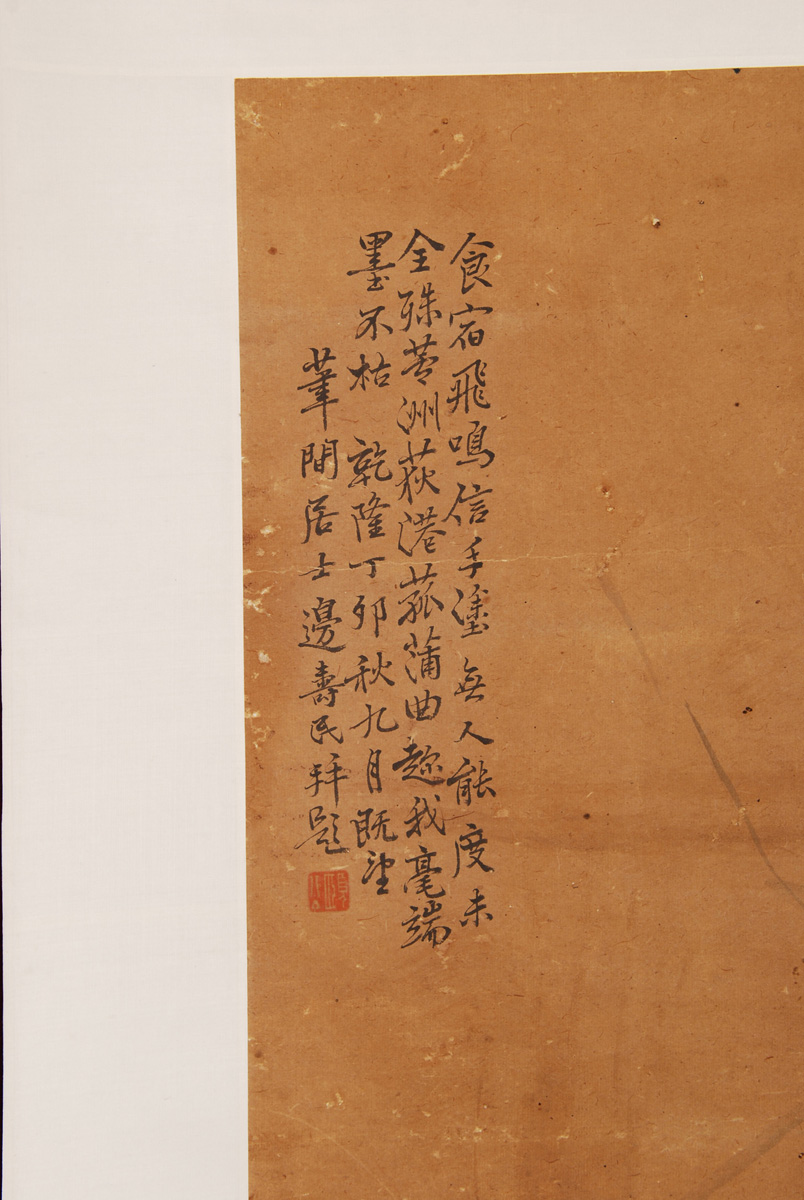 食宿飛鳴信手塗無人能度未
全殊蓼洲荻港菰蒲曲趂我毫端
墨不枯 乾隆丁卯秋九月既望
葦間居士邊壽民拜題